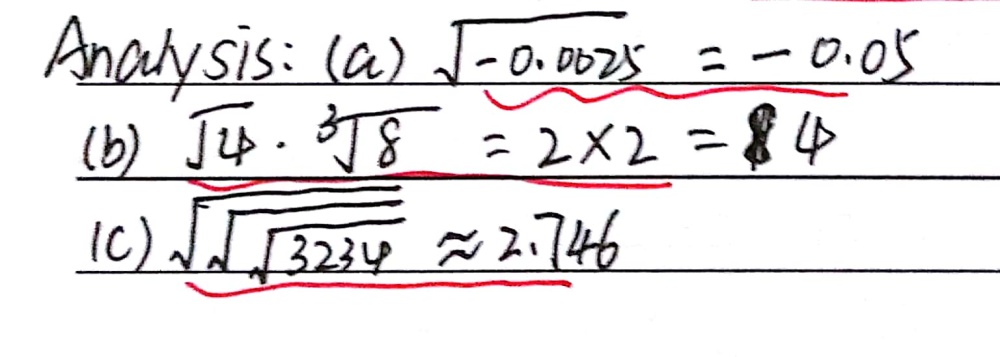 Analysis: (a) √-0.0025 = -0.05
(b) √4 · ³√8 = 2×2 = 4
(c) √√√3234 ≈ 2.746